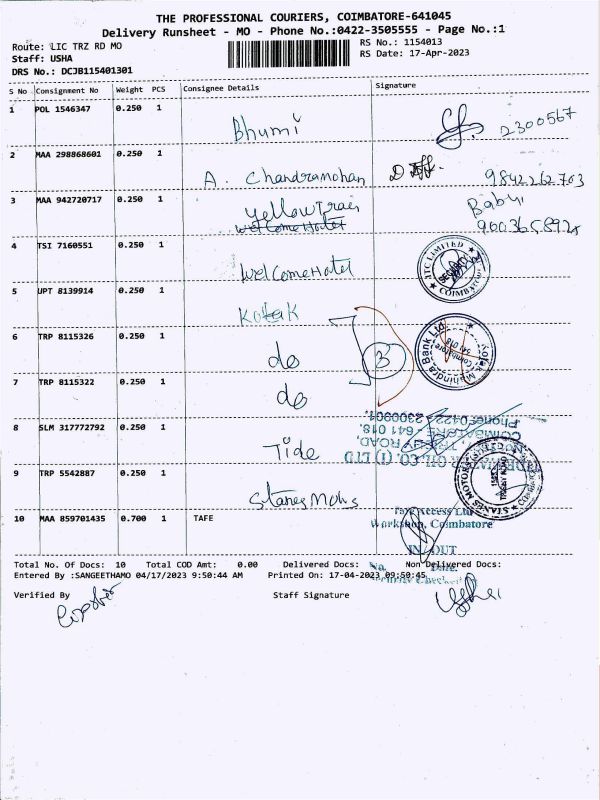 THE PROFESSIONAL COURIERS, COIMBATORE-641045
Delivery Runsheet - MO - Phone No.:0422-3505555 - Page No.:1
Route: LIC TRZ RD MO
RS No.: 1154013
Staff: USHA
RS Date: 17-Apr-2023
DRS No.: DCJB115401301
S No Consignment No Weight PCS Consignee Details Signature
1 POL 1546347 0.250 1 Bhumi 2300567
2 MAA 298868601 0.250 1 A. Chandramohan 9842262703
3 MAA 942720717 0.250 1 Yellow Train Baby
welcome Hotel 9003658928
4 TSI 7160551 0.250 1 WelcomeHotel ITC LIMITED COIMBATORE
5 UPT 8139914 0.250 1 Kotak
6 TRP 8115326 0.250 1 do 3 Kotak Mahindra Bank Ltd. Coimbatore 641 018
7 TRP 8115322 0.250 1 do
8 SLM 317772792 0.250 1 Tide
OIL CO. (I) LTD
ROAD,
COIMBATORE - 641 018.
Phone: 0422 - 2300901.
9 TRP 5542887 0.250 1 Stanes Motors STANES MOTORS
10 MAA 859701435 0.700 1 TAFE
Tafe Access Ltd
Workshop, Coimbatore
IN / OUT
No. Date.
Total No. Of Docs: 10 Total COD Amt: 0.00 Delivered Docs: Non Delivered Docs:
Entered By :SANGEETHAMO 04/17/2023 9:50:44 AM Printed On: 17-04-2023 09:50:45
Verified By Staff Signature
Usha